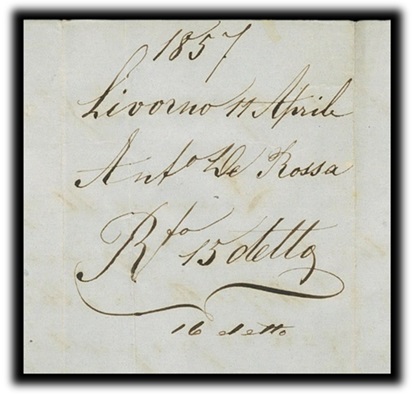 1857
Livorno 11 Aprile
Ant.o De Rossa
R.to 15 detto
16 detto